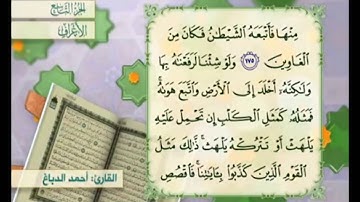 الجزء التاسع
الأعراف
مِنْهَا فَأَتْبَعَهُ الشَّيْطَٰنُ فَكَانَ مِنَ
الْغَاوِينَ ١٧٥ وَلَوْ شِئْنَا لَرَفَعْنَٰهُ بِهَا
وَلَٰكِنَّهُۥ أَخْلَدَ إِلَى الْأَرْضِ وَاتَّبَعَ هَوَىٰهُ
فَمَثَلُهُۥ كَمَثَلِ الْكَلْبِ إِن تَحْمِلْ عَلَيْهِ
يَلْهَثْ أَوْ تَتْرُكْهُ يَلْهَث ذَّٰلِكَ مَثَلُ
الْقَوْمِ الَّذِينَ كَذَّبُوا بِـَٔايَٰتِنَا فَاقْصُصِ
القارئ: أحمد الدباغ